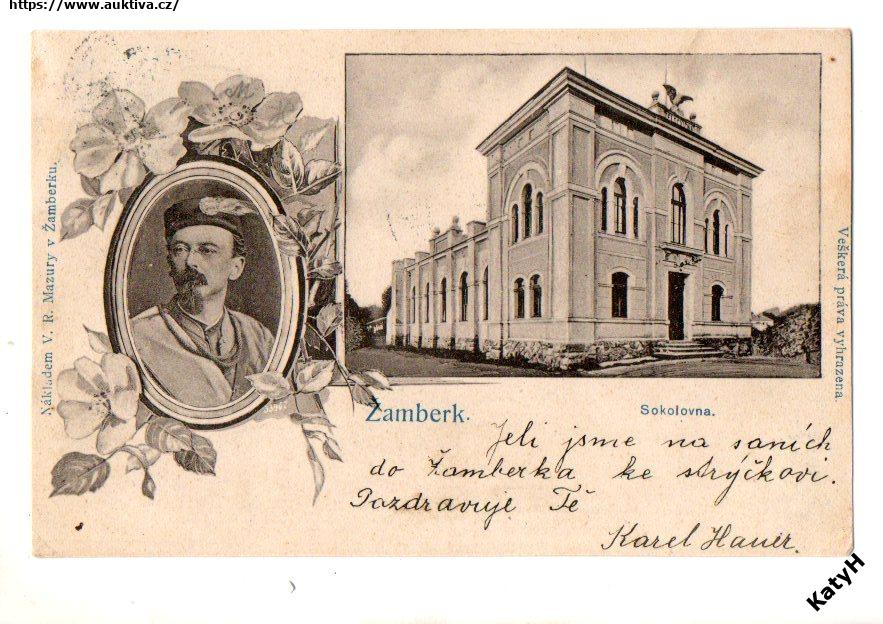 https://www.auktiva.cz/
Nákladem V. R. Mazury v Žamberku.
Veškerá práva vyhrazena.
Žamberk.
Sokolovna.
Jeli jsme na saních
do Žamberka ke strýčkovi.
Pozdravuje Tě
Karel Hauer.
KatyH